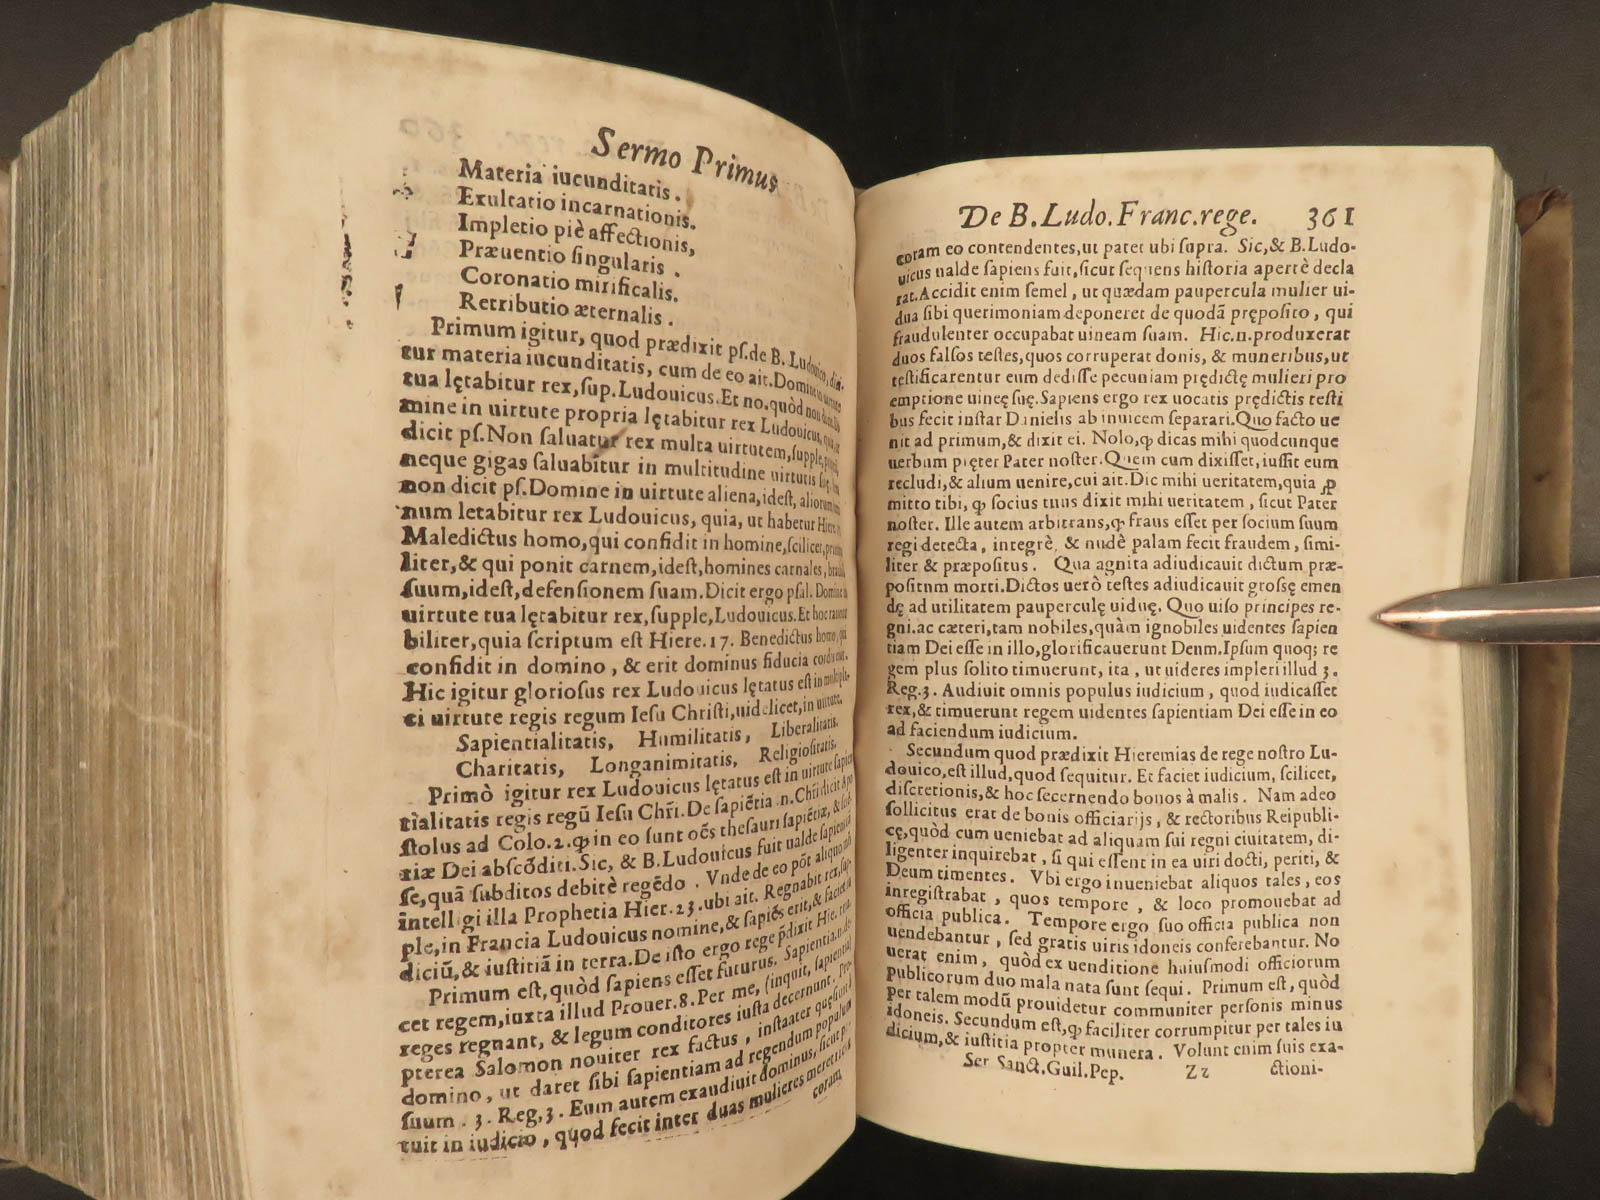 Sermo Primus
Materia iucunditatis.
Exultatio incarnationis.
Impletio piè affectionis,
Præuentio singularis.
Coronatio mirificalis.
Retributio æternalis.
Primum igitur, quod prædixit ps. de B. Ludouico, dici-
tur materia iucunditatis, cum de eo ait. Domine in uirtute
tua lętabitur rex, sup. Ludouicus. Et no. quòd non dicit
mine in uirtute propria lętabitur rex Ludouicus,
dicit ps. Non saluatur rex multa uirtutem, supple,
neque gigas saluabitur in multitudine uirtutis suę.
non dicit ps. Domine in uirtute aliena, idest, aliorum
num letabitur rex Ludouicus, quia, ut habetur Hiere.
Maledictus homo, qui confidit in homine, scilicet,
liter, & qui ponit carnem, idest, homines carnales,
suum, idest, defensionem suam. Dicit ergo psal. Domine in
uirtute tua lętabitur rex, supple, Ludouicus. Et hoc
biliter, quia scriptum est Hiere. 17. Benedictus homo, qui
confidit in domino, & erit dominus fiducia
Hic igitur gloriosus rex Ludouicus lętatus est in multipli-
ci uirtute regis regum Iesu Christi, uidelicet, in uirtute.
Sapientialitatis, Humilitatis, Liberalitatis.
Charitatis, Longanimitatis, Religiositatis.
Primò igitur rex Ludouicus lętatus est in uirtute sapien
tialitatis regis regū Iesu Chr̄i. De sapiētia .n. Chr̄i dicit Apo
stolus ad Colo. 2. ꝙ in eo sunt oēs thesauri sapiētiæ, &
tiæ Dei abscōditi. Sic, & B. Ludouicus fuit ualde sapiens
se, quā subditos debitè regēdo. Vnde de eo pōt aliquo
intelligi illa Prophetia Hier. 23. ubi ait. Regnabit rex, sup-
ple, in Francia Ludouicus nomine, & sapiēs erit, & faciet
diciū, & iustitiā in terra. De isto ergo rege p̄dixit Hie.
Primum est, quòd sapiens esset futurus. Sapientia.n.
cet regem, iuxta illud Prouer. 8. Per me, (inquit, sapientia)
reges regnant, & legum conditores iusta decernunt.
pterea Salomon nouiter rex factus, instanter quęsiuit
domino, ut daret sibi sapientiam ad regendum populum
suum. 3. Reg. 3. Eum autem exaudiuit dominus, sicut
tuit in iudicio, quod fecit inter duas mulieres meretrices
coram
De B. Ludo. Franc. rege. 361
coram eo contendentes, ut patet ubi supra. Sic, & B. Ludo-
uicus ualde sapiens fuit, sicut sequens historia apertè decla
rat. Accidit enim semel, ut quædam paupercula mulier ui-
dua sibi querimoniam deponeret de quodā pręposito, qui
fraudulenter occupabat uineam suam. Hic .n. produxerat
duos falsos testes, quos corruperat donis, & muneribus, ut
testificarentur eum dedisse pecuniam prędictę mulieri pro
emptione uineę suę. Sapiens ergo rex uocatis prędictis testi
bus fecit instar Danielis ab inuicem separari. Quo facto ue
nit ad primum, & dixit ei. Nolo, ꝙ dicas mihi quodcunque
uerbum pręter Pater noster. Quem cum dixisset, iussit eum
recludi, & alium uenire, cui ait. Dic mihi ueritatem, quia ꝓ
mitto tibi, ꝙ socius tuus dixit mihi ueritatem, sicut Pater
noster. Ille autem arbitrans, ꝙ fraus esset per socium suum
regi detecta, integrè, & nudè palam fecit fraudem, simi-
liter & præpositus. Qua agnita adiudicauit dictum præ-
positum morti. Dictos uerò testes adiudicauit grossę emen
dę ad utilitatem pauperculę uiduę. Quo uiso principes re-
gni. ac cæteri, tam nobiles, quàm ignobiles uidentes sapien
tiam Dei esse in illo, glorificauerunt Deum. Ipsum quoq; re
gem plus solito timuerunt, ita, ut uideres impleri illud 3.
Reg. 3. Audiuit omnis populus iudicium, quod iudicasset
rex, & timuerunt regem uidentes sapientiam Dei esse in eo
ad faciendum iudicium.
Secundum quod prædixit Hieremias de rege nostro Lu-
douico, est illud, quod sequitur. Et faciet iudicium, scilicet,
discretionis, & hoc secernendo bonos à malis. Nam adeo
sollicitus erat de bonis officiarijs, & rectoribus Reipubli-
cę, quòd cum ueniebat ad aliquam sui regni ciuitatem, di-
ligenter inquirebat, si qui essent in ea uiri docti, periti, &
Deum timentes. Vbi ergo inueniebat aliquos tales, eos
inregistrabat, quos tempore, & loco promouebat ad
officia publica. Tempore ergo suo officia publica non
uendebantur, sed gratis uiris idoneis conferebantur. No
uerat enim, quòd ex uenditione huiusmodi officiorum
publicorum duo mala nata sunt sequi. Primum est, quòd
per talem modū prouidetur communiter personis minus
idoneis. Secundum est, ꝙ faciliter corrumpitur per tales iu
dicium, & iustitia propter munera. Volunt enim suis exa-
Ser. Sanct. Guil. Pep. Zz ctioni-